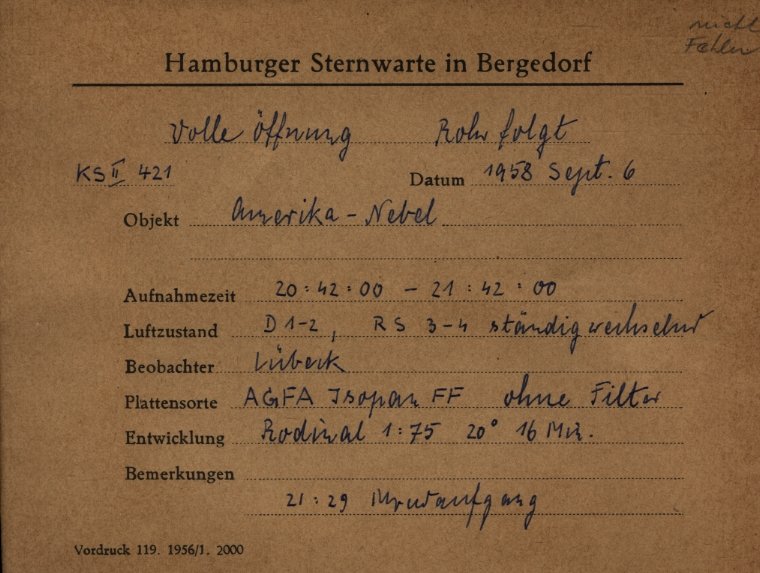 nicht
Fehler
Hamburger Sternwarte in Bergedorf
Volle Öffnung Rohr folgt
KS II 421 Datum 1958 Sept. 6
Objekt Amerika-Nebel
Aufnahmezeit 20:42:00 - 21:42:00
Luftzustand D 1-2, RS 3-4 ständig wechselnd
Beobachter Lübeck
Plattensorte AGFA Isopan FF ohne Filter
Entwicklung Rodinal 1:75 20° 16 Min.
Bemerkungen
21:29 Mondaufgang
Vordruck 119. 1956/1. 2000